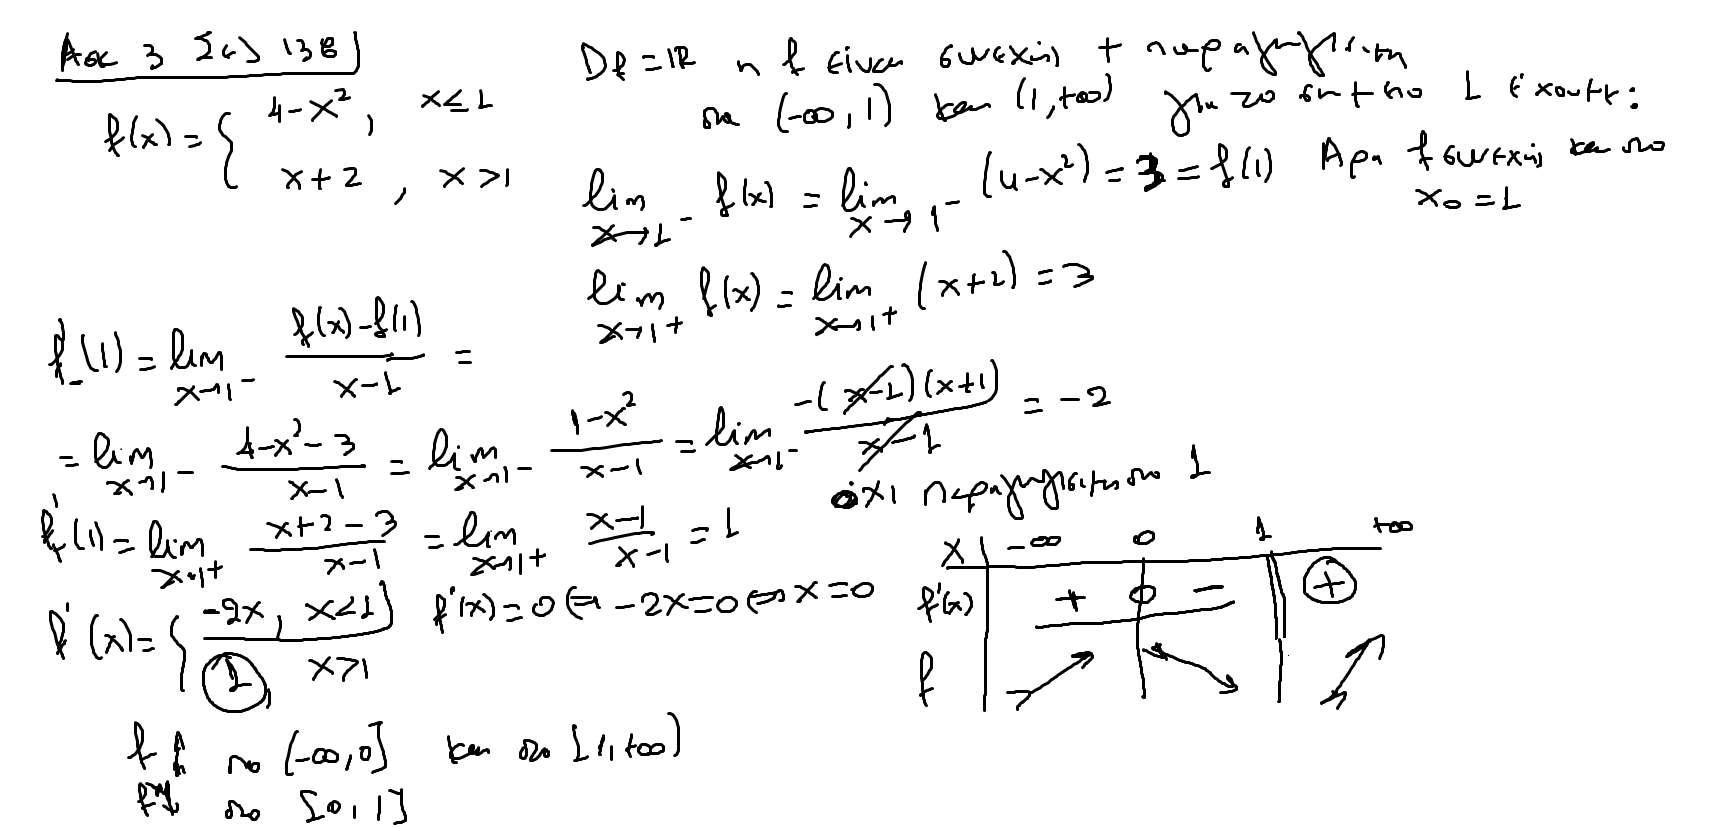 Ασκ 3 Σελ 138
f(x) = { 4-x², x≤1
x+2, x>1
Df = ℝ η f είναι συνεχής + παραγωγίσιμη
στα (-∞, 1) και (1, +∞) για το στο 1 έχουμε:
lim x→1⁻ f(x) = lim x→1⁻ (4-x²) = 3 = f(1) Άρα f συνεχής και στο
x₀ = 1
lim x→1⁺ f(x) = lim x→1⁺ (x+2) = 3
f'₋(1) = lim x→1⁻ (f(x)-f(1))/(x-1) =
= lim x→1⁻ (4-x²-3)/(x-1) = lim x→1⁻ (1-x²)/(x-1) = lim x→1⁻ -(x-1)(x+1)/(x-1) = -2
όχι παραγωγίσιμη στο 1
f'(1) = lim x→1⁺ (x+2-3)/(x-1) = lim x→1⁺ (x-1)/(x-1) = 1
f'(x) = { -2x, x<1
1, x>1
f'(x) = 0 ⇔ -2x=0 ⇔ x=0
x -∞ 0 1 +∞
f'(x) + 0 - +
f ↗ ↘ ↗
f ↑ στο (-∞, 0] και στο [1, +∞)
f ↓ στο [0, 1]